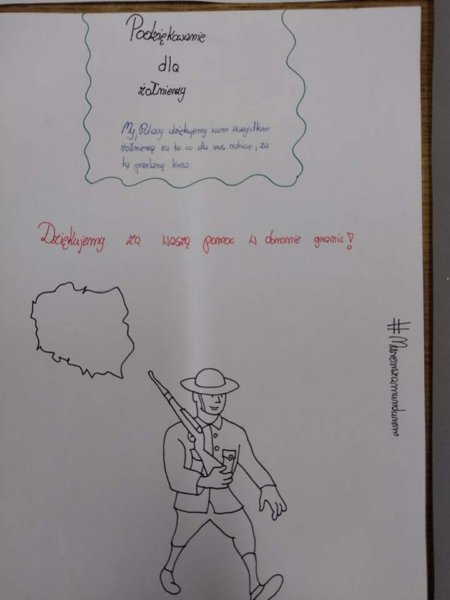 Podziękowanie
dla
żołnierzy
My, Polacy dziękujemy wam wszystkim
żołnierzą za to co dla nas robicie, za
tą przelaną krew.
Dziękujemy za waszą pomoc w obronie granic!
#Muremzamundurem